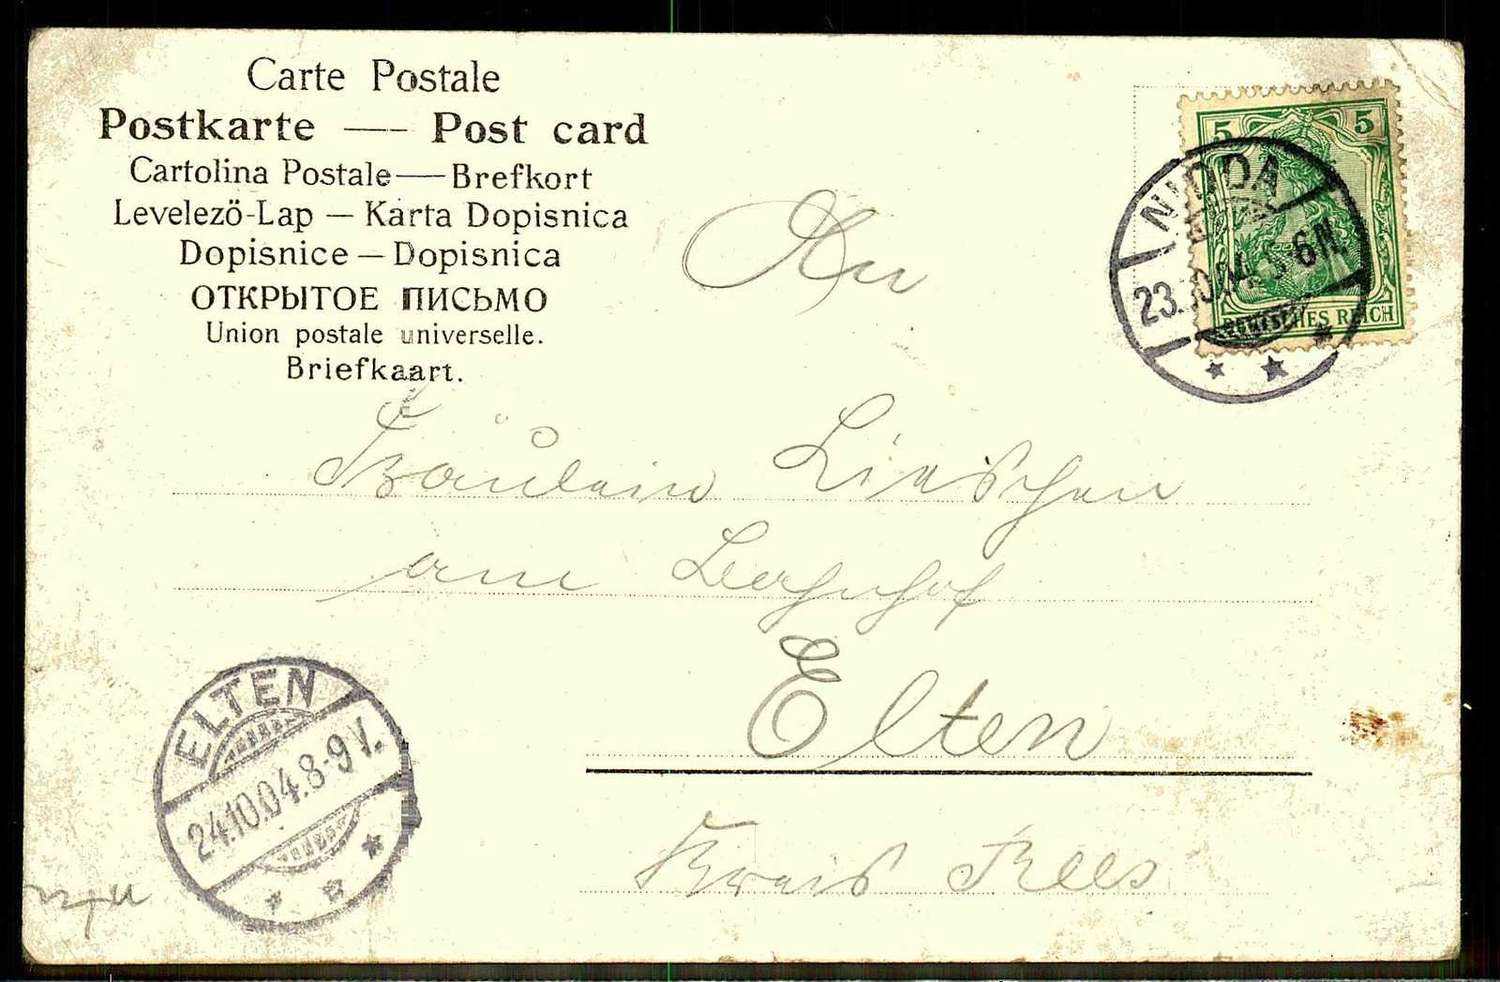 Carte Postale
Postkarte — Post card
Cartolina Postale — Brefkort
Levelezö-Lap — Karta Dopisnica
Dopisnice — Dopisnica
ОТКРЫТОЕ ПИСЬМО
Union postale universelle.
Briefkaart.
5 5
DEUTSCHES REICH
NIDDA
23. 10.04. 5-6N.
An
Fräulein Lieschen
am Bahnhof
Elten
Kreis Rees
ELTEN
24.10.04.8-9V.